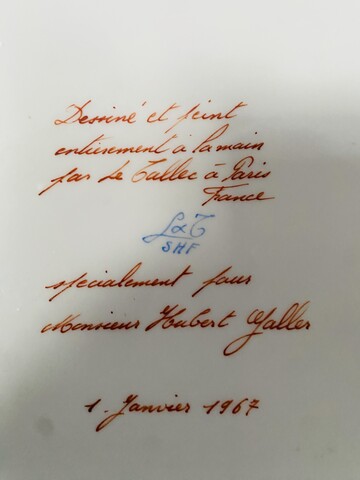 Dessiné et peint
entièrement à la main
par Le Tallec à Paris
France
LT
SHF
spécialement pour
Monsieur Hubert Yaller
1. Janvier 1967